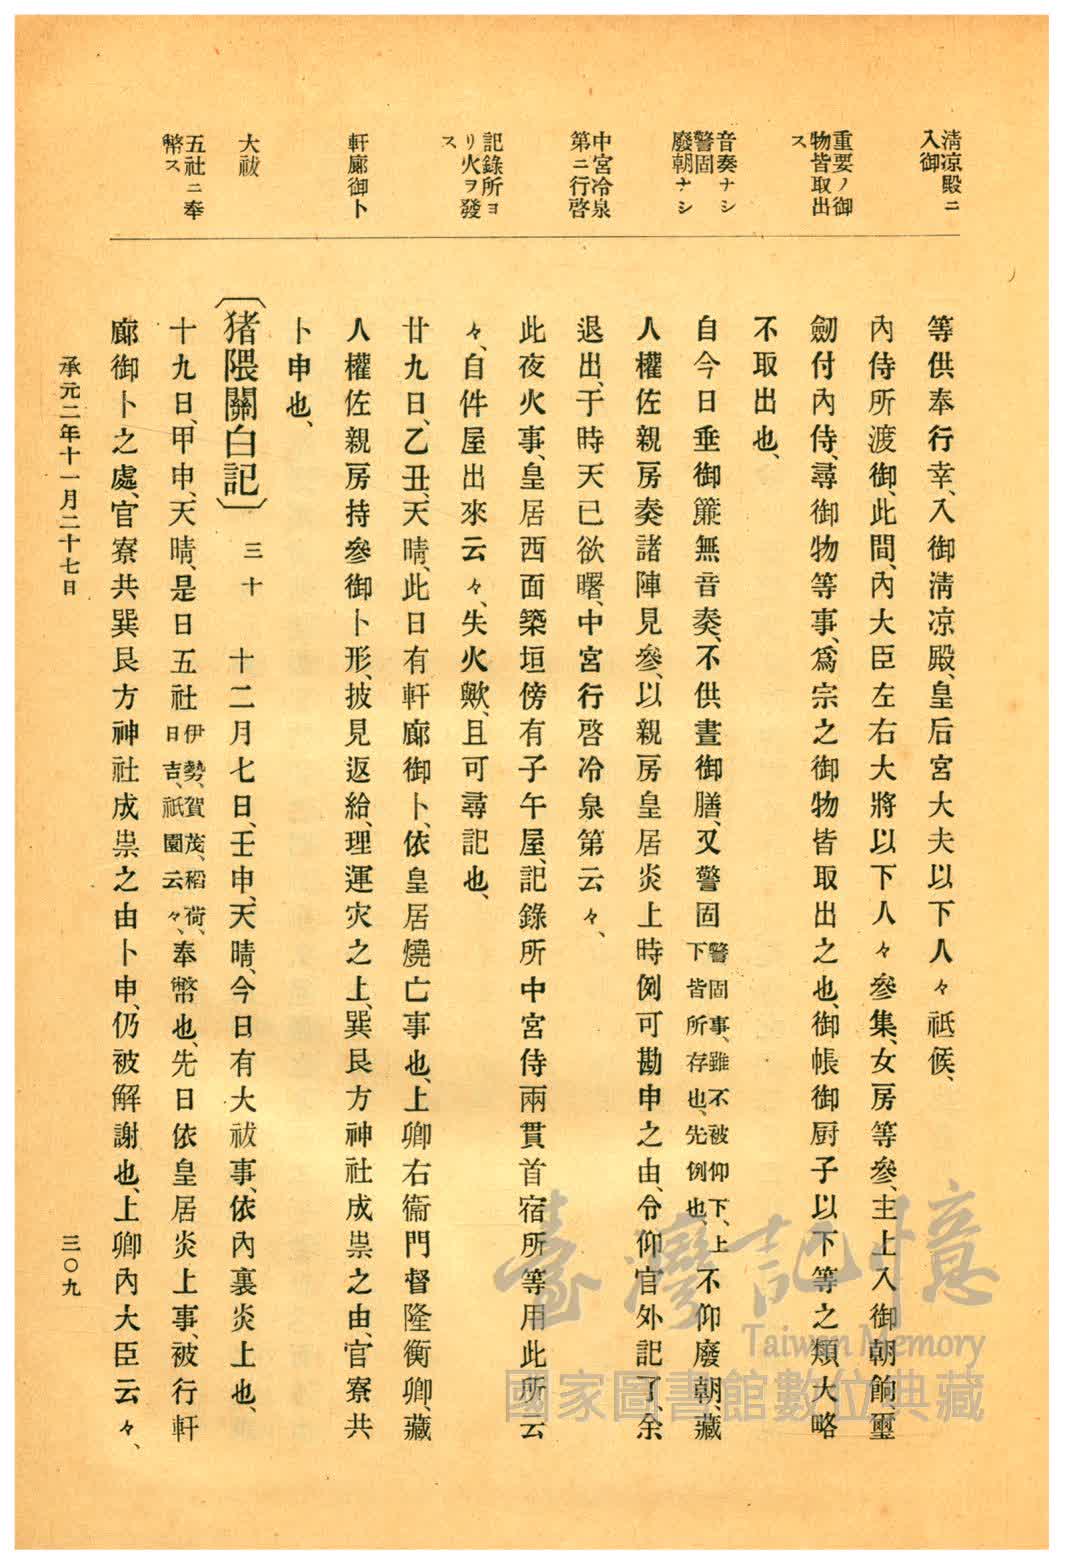 清凉殿ニ
入御
重要ノ御
物皆取出
ス
音奏ナシ
警固
廢朝ナシ
中宮冷泉
第ニ行啓
記錄所ヨ
リ火ヲ發
ス
軒廊御卜
大祓
五社ニ奉
幣ス
等供奉行幸、入御淸凉殿、皇后宮大夫以下人々祗候、
內侍所渡御、此間、內大臣左右大將以下人々參集、女房等參、主上入御朝餉、璽
劒付內侍、尋御物等事、爲宗之御物皆取出之也、御帳御厨子以下等之類大略
不取出也、
自今日垂御簾無音奏、不供晝御膳、又警固警固事、雖不被仰下、上
下皆所存也、先例也、不仰廢朝、藏
人權佐親房奏諸陣見參、以親房皇居炎上時例可勘申之由、令仰官外記了、余
退出、于時天已欲曙、中宮行啓冷泉第云々、
此夜火事、皇居西面築垣傍有子午屋、記錄所中宮侍兩貫首宿所等用此所云
々、自件屋出來云々、失火歟、且可尋記也、
廿九日、乙丑、天晴、此日有軒廊御卜、依皇居燒亡事也、上卿右衞門督隆衡卿、藏
人權佐親房持參御卜形、披見返給、理運灾之上、巽艮方神社成祟之由、官寮共
卜申也、
〔猪隈關白記〕三十 十二月七日、壬申、天晴、今日有大祓事、依內裏炎上也、
十九日、甲申、天晴、是日五社伊勢、賀茂、稻荷、
日吉、祇園云々、奉幣也、先日依皇居炎上事、被行軒
廊御卜之處、官寮共巽艮方神社成祟之由卜申、仍被解謝也、上卿內大臣云々、
承元二年十一月二十七日
三〇九
臺灣記憶
Taiwan Memory
國家圖書館數位典藏